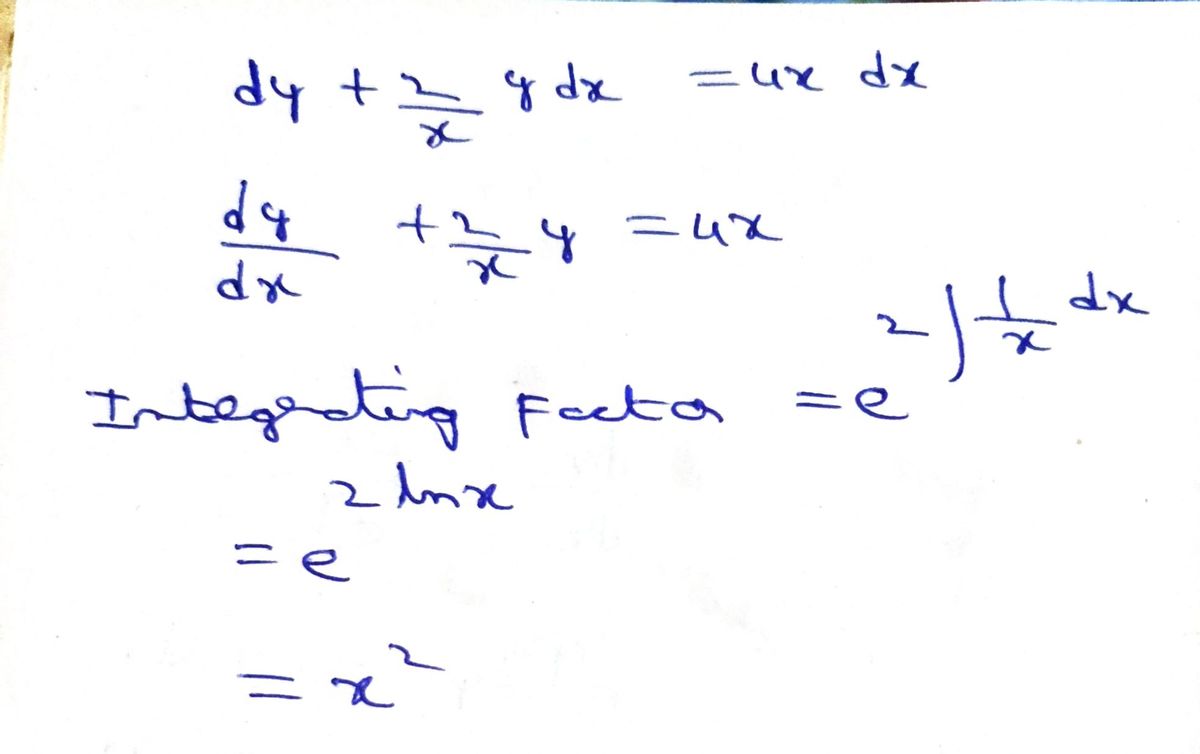 dy + 2/x y dx = 4x dx
dy/dx + 2/x y = 4x
Integrating Factor = e^(2∫ 1/x dx)
= e^(2 ln x)
= x²